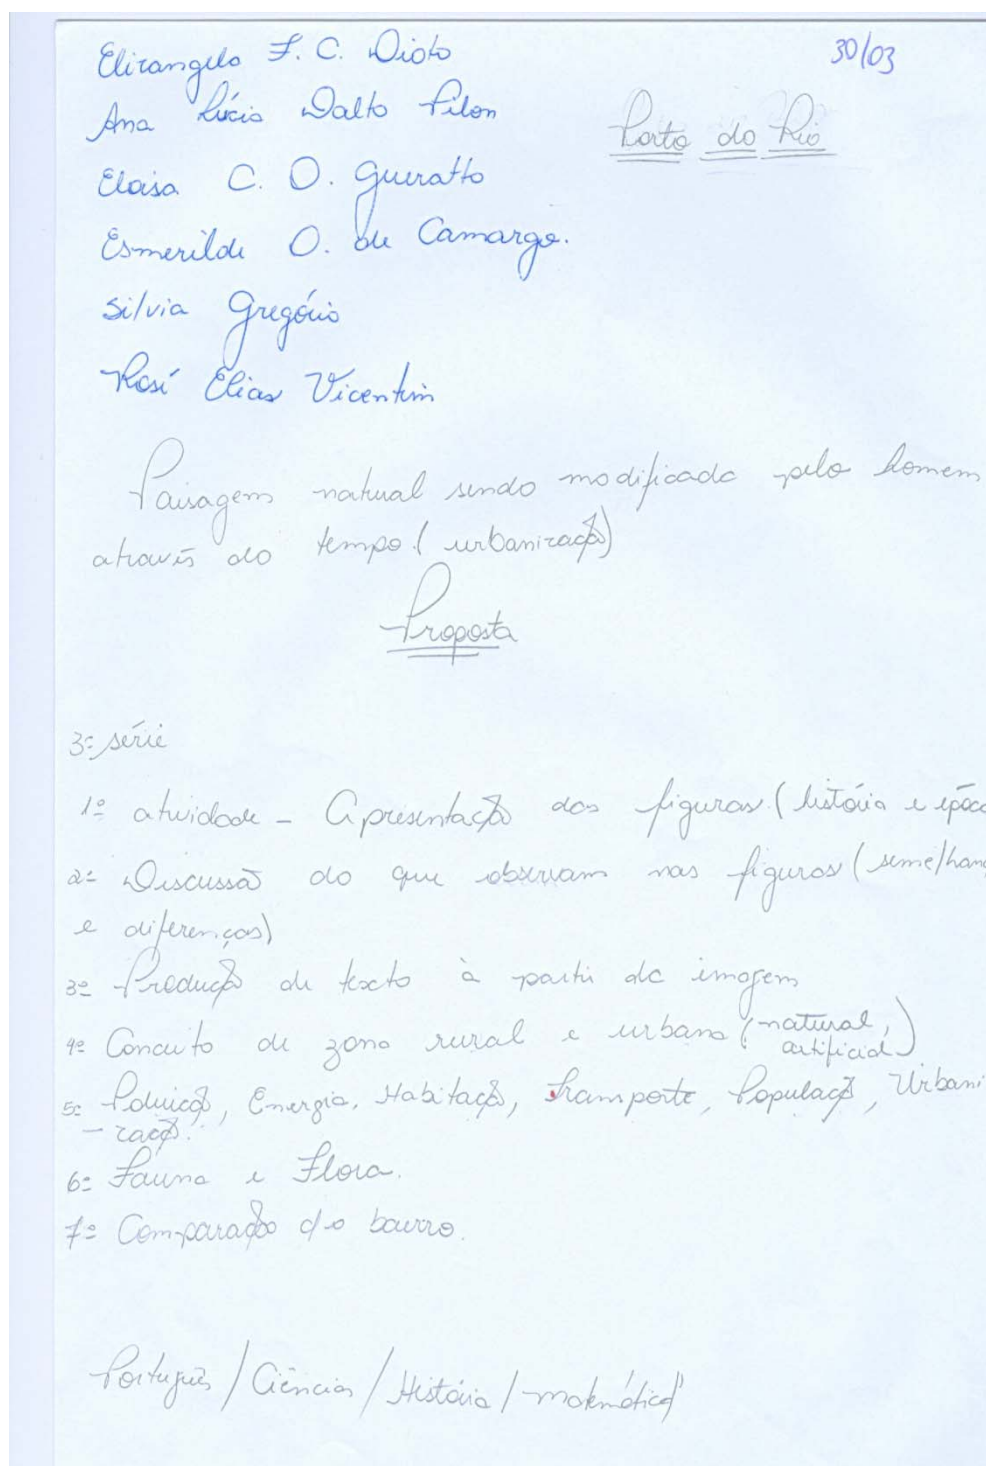 Elirangela F. C. Dioto
30/03
Ana Lúcia Dalto Pilon
Porto do Rio
Eloisa C. O. Gueratto
Esmerilde O. de Camargo.
Silvia Gregório
Rosí Elias Vicentim
Paisagem natural sendo modificada pelo homem
através do tempo. (urbanização)
Proposta
3ª série
1ª atividade - Apresentação das figuras. (história e époc
2ª Discussão do que observam nas figuras (semelhanç
e diferenças)
3ª Produção de texto à partir da imagem
4ª Conceito de zona rural e urbana (natural,
artificial)
5ª Poluição, Energia, Habitação, Transporte, População, Urbani
-zação.
6ª Fauna e Flora.
7ª Comparação c/ o bairro.
Português / Ciências / História / matemática